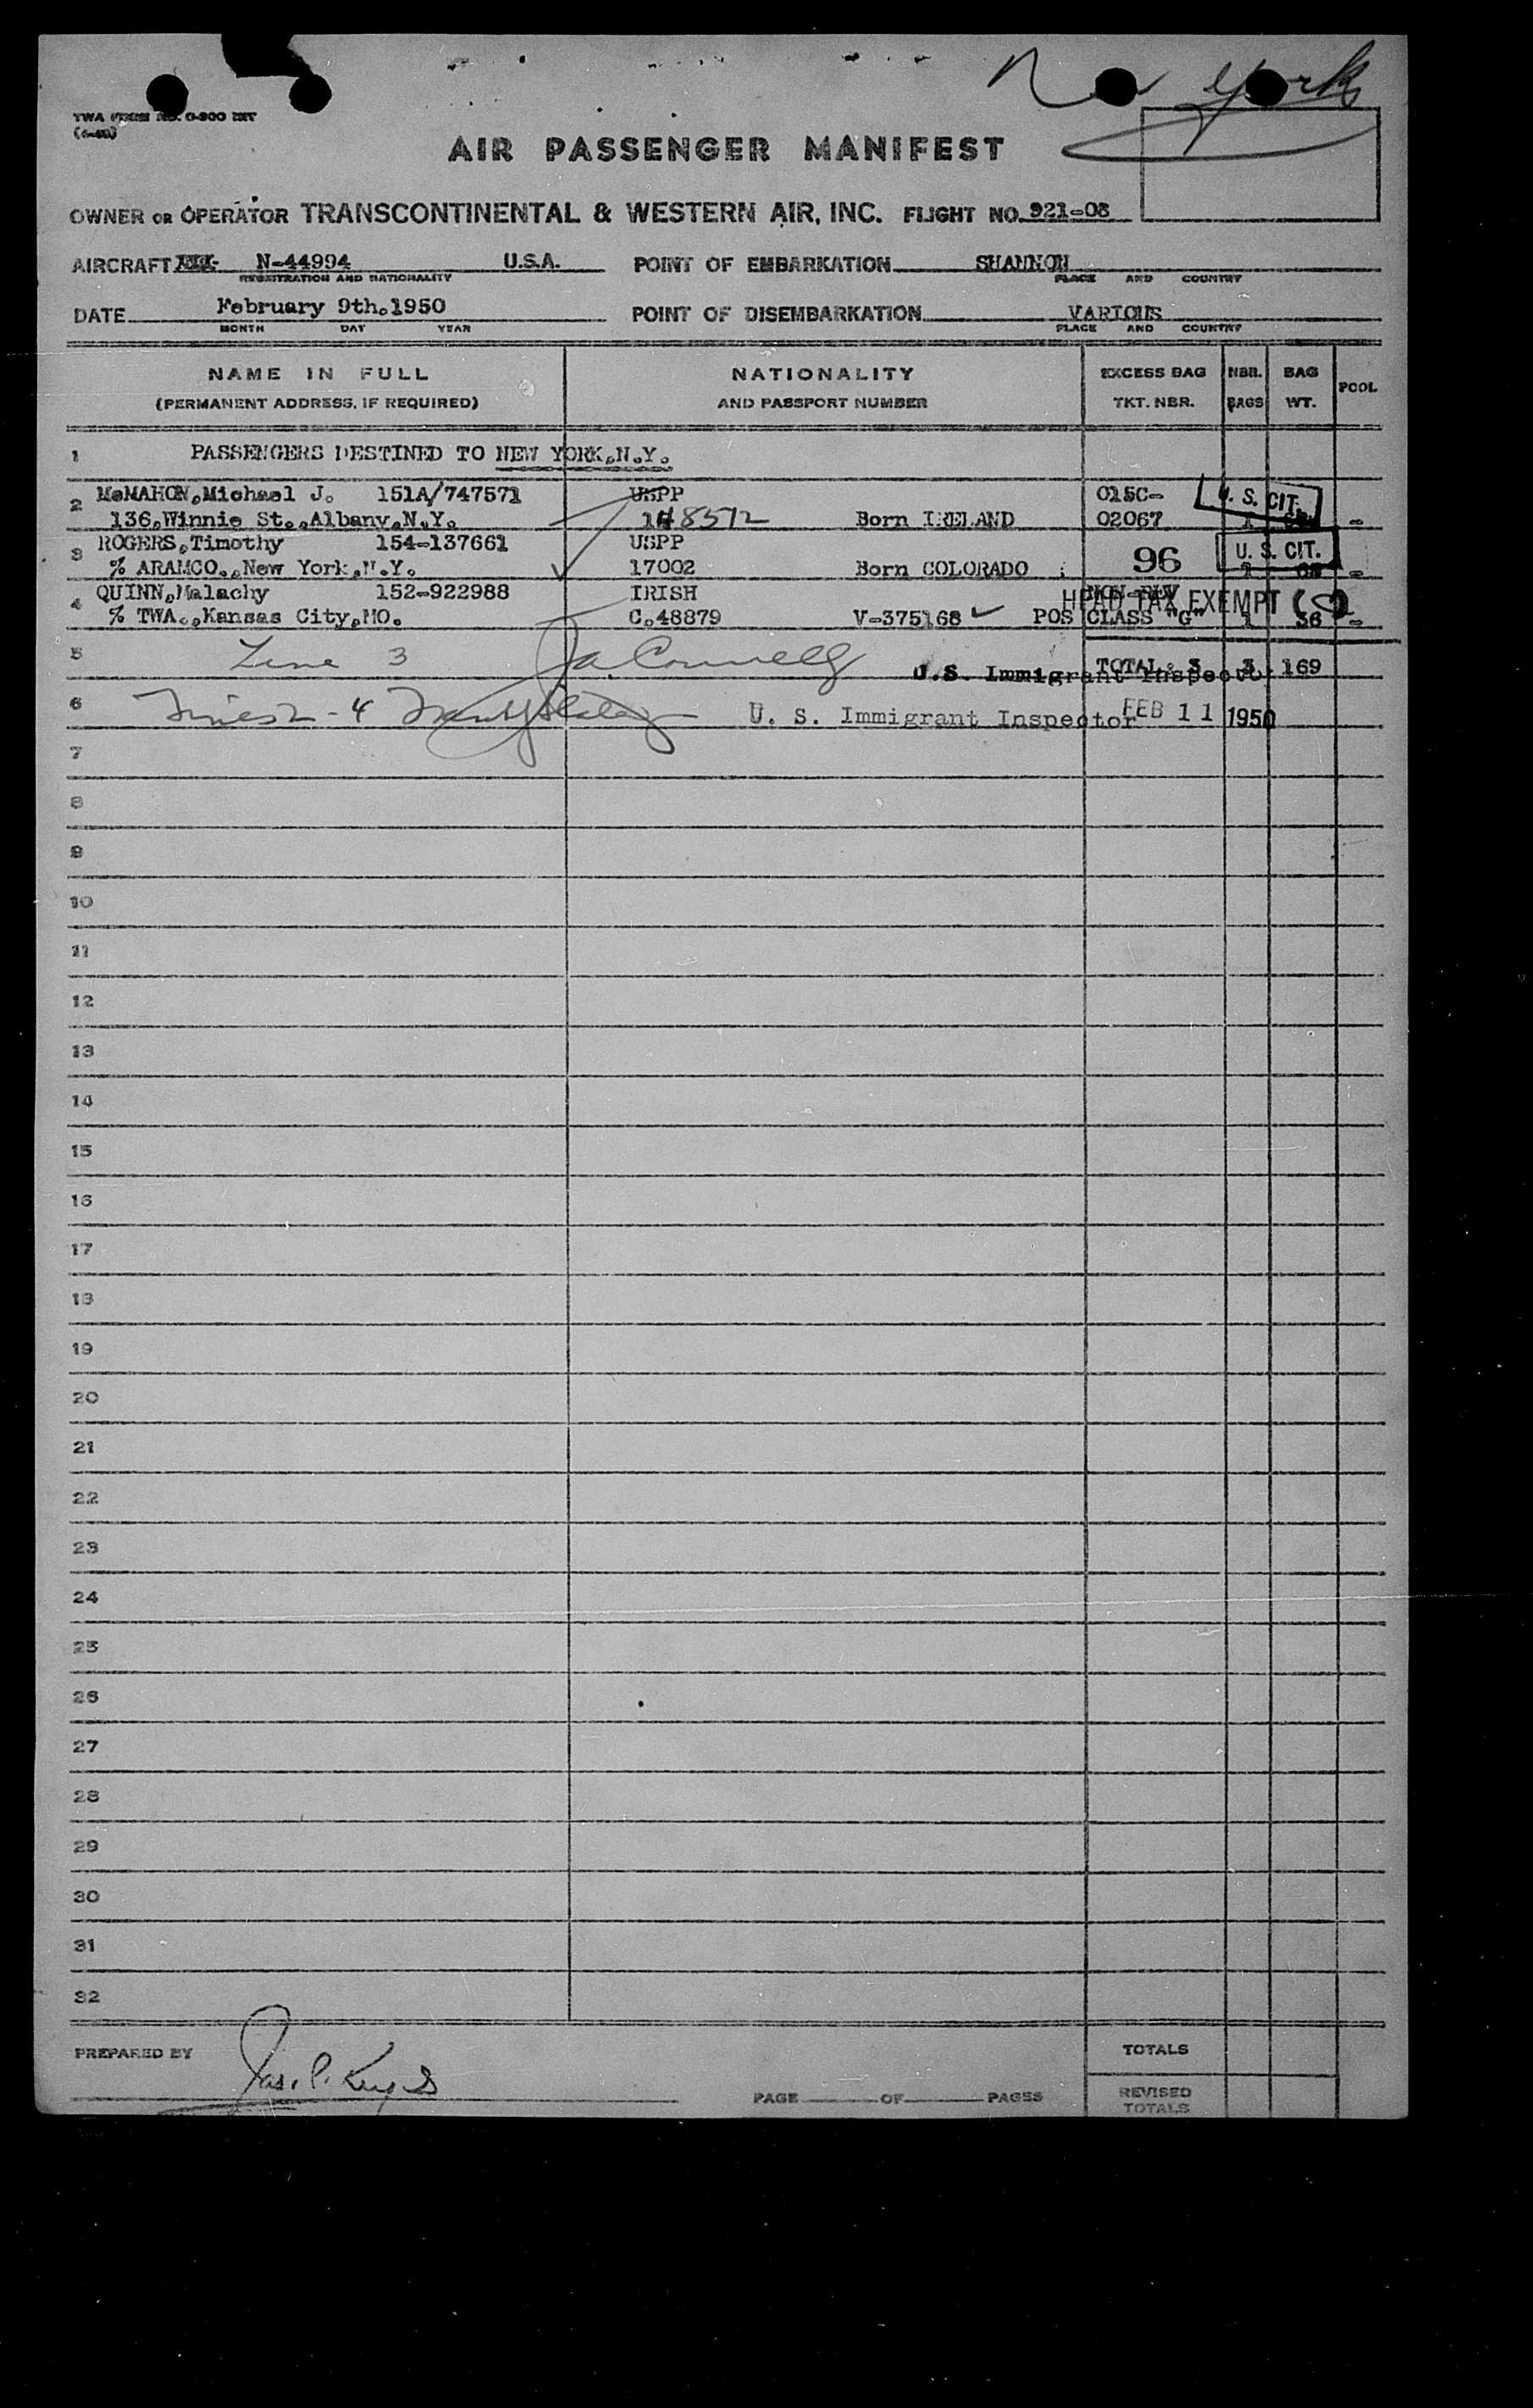 New York
TWA FORM NO. O-800 INT
AIR PASSENGER MANIFEST
OWNER OR OPERATOR TRANSCONTINENTAL & WESTERN AIR, INC. FLIGHT NO. 921-08
AIRCRAFT N-44994 U.S.A. POINT OF EMBARKATION SHANNON
REGISTRATION AND NATIONALITY PLACE AND COUNTRY
DATE February 9th.1950 POINT OF DISEMBARKATION VARIOUS
MONTH DAY YEAR PLACE AND COUNTRY
NAME IN FULL NATIONALITY EXCESS BAG NBR. BAG POOL
(PERMANENT ADDRESS, IF REQUIRED) AND PASSPORT NUMBER TKT. NBR. BAGS WT.
1 PASSENGERS DESTINED TO NEW YORK,N.Y.
2 McMAHON,Michael J. 151A/747571 USPP 015C- U. S. CIT.
136,Winnie St.,Albany,N.Y. 148512 Born IRELAND 02067 1 -
3 ROGERS,Timothy 154-137661 USPP 96 U. S. CIT.
% ARAMCO.,New York,N.Y. 17002 Born COLORADO 1 -
4 QUINN,Malachy 152-922988 IRISH NON-REV HEAD TAX EXEMPT
% TWA.,Kansas City,MO. C.48879 V-375168 POS CLASS "G" 1 36 -
5 Line 3 U.S. Immigrant Inspector TOTAL: 3 3 169
6 Lines 2-4 U. S. Immigrant Inspector FEB 11 1950
7
8
9
10
11
12
13
14
15
16
17
18
19
20
21
22
23
24
25
26
27
28
29
30
31
32
PREPARED BY TOTALS
PAGE OF PAGES REVISED
TOTALS